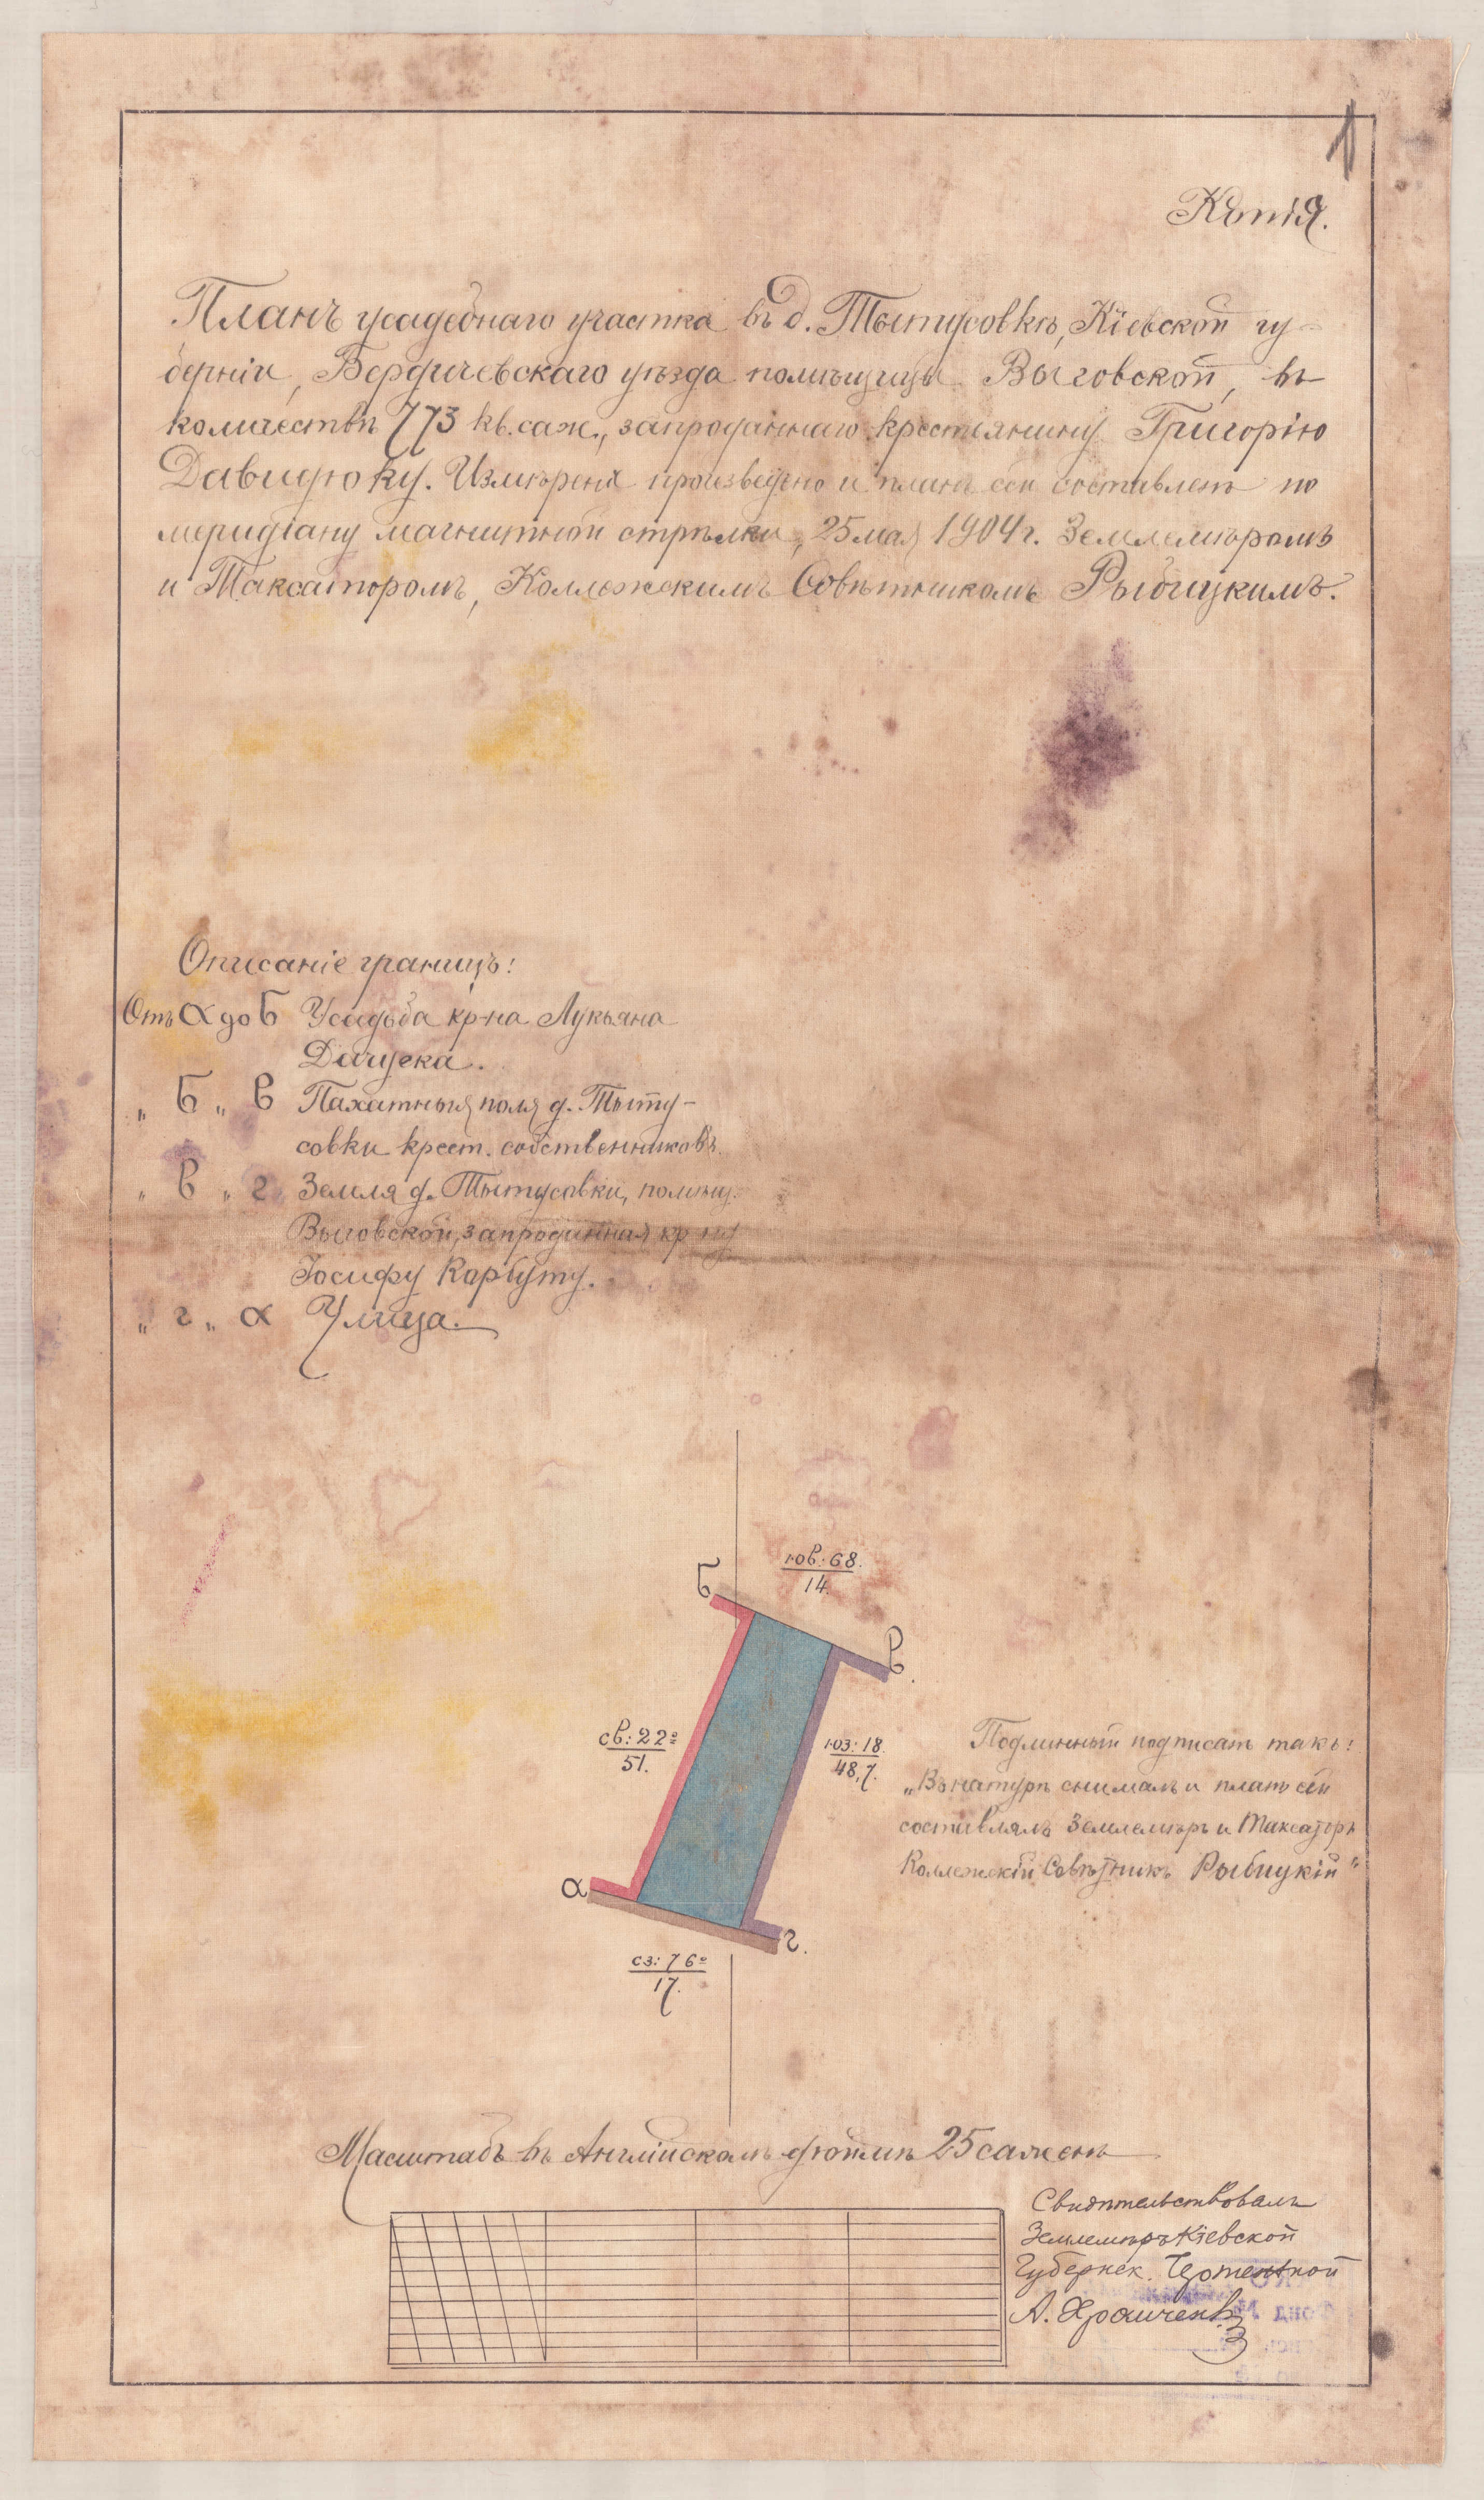 1
Копія.
Планъ усадебнаго участка въ д. Тытусовкѣ, Кіевской гу-
берніи, Бердичевскаго уѣзда помѣщицы Выговской, въ
количествѣ 773 кв. саж., запроданнаго крестьянину Григорію
Давидюку. Измѣреніе произведено и планъ сей составленъ по
меридіану магнитной стрѣлки, 25 мая 1904 г. Землемѣромъ
и Таксаторомъ, Коллежскимъ Совѣтникомъ Рыбицкимъ.
Описаніе границъ:
Отъ а до Б Усадьба кр-на Лукьяна
„ Б „ В Пахатныя поля д. Тыту-
совки крест. собственниковъ.
„ В „ г Земля д. Тытусовки, помѣщ.
Выговской, запроданная кр-ну
Іосифу Корбуту.
„ г „ а Улица.
Б
юв: 68.
14.
В.
св: 22°
51.
юз: 18.
48,7.
а
г.
сз: 76°
17.
Подлинный подписалъ такъ:
„Въ натурѣ снималъ и планъ сей
составлялъ Землемѣръ и Таксаторъ
Коллежскій Совѣтникъ Рыбицкій"
Масштабъ въ Англійскомъ дюймѣ 25 сажень
Свидѣтельствовалъ
Землемѣръ Кіевской
Губернск. Чертежной
А.